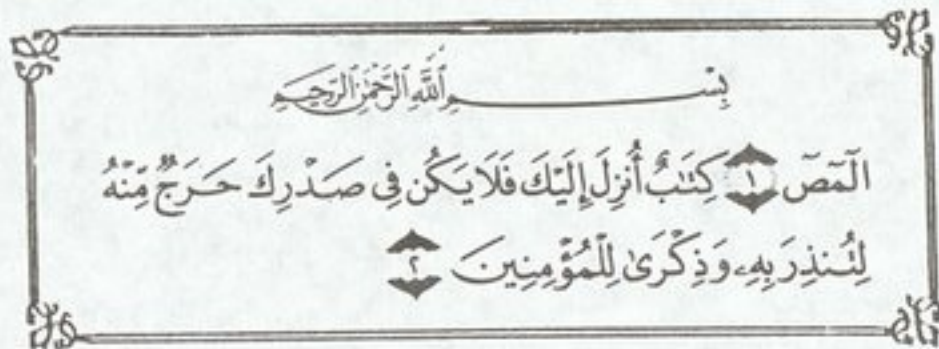 بِسْمِ ٱللَّهِ ٱلرَّحْمَٰنِ ٱلرَّحِيمِ
الٓمٓصٓ ١ كِتَٰبٌ أُنزِلَ إِلَيْكَ فَلَا يَكُن فِى صَدْرِكَ حَرَجٌ مِّنْهُ
لِتُنذِرَ بِهِۦ وَذِكْرَىٰ لِلْمُؤْمِنِينَ ٢